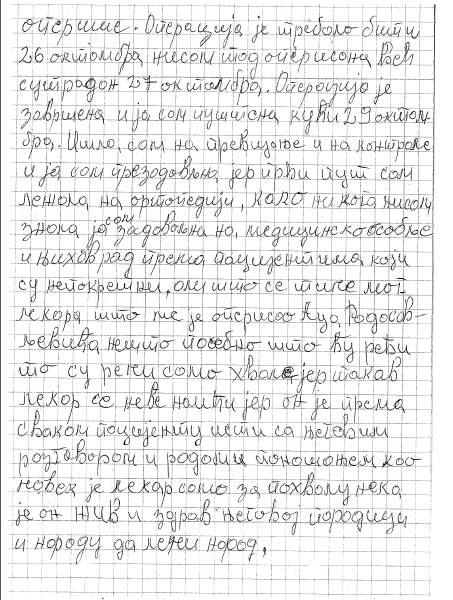 оперише. Операција је требало бити
26 октомбра нисам тад оперисана већ
сутрадан 27 октомбра. Операција је
завршена и ја сам пуштена кући 29 октом-
бра. Ишла сам на превијање и на контроле
и ја сам презадовољна јер први пут сам
лежала на ортопедији, како никога нисам
знала ја сам задовољна на медицинско особље
и њихов рад према пацијентима који
су непокретни, али што се тиче мог
лекара што ме је оперисао Аца Радосав-
љевића нешто посебно што ћу рећи
то су речи само хвале јер такав
лекар се неће наћи јер он је према
сваком пацијенту исти са његовим
разговором и радом и понашањем као
човек је лекар само за похвалу нека
је он жив и здрав његовој породици
и народу да лечи народ.